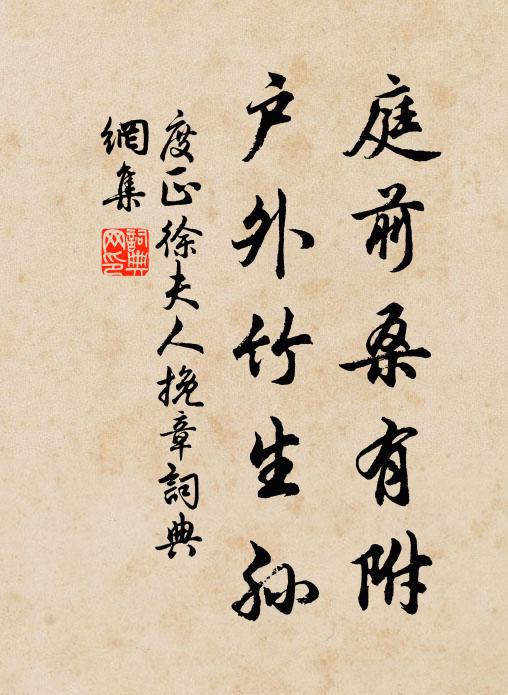 庭前桑有附
户外竹生孙
度正徐夫人挽章詞典
網集
詞典
网印